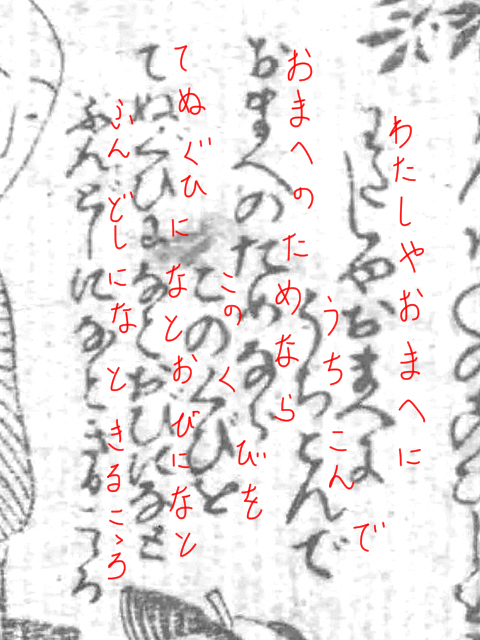 わたしやおまへに
うちこんで
おまへのためなら
このくびを
てぬぐひになとおびになと
ふんどしになときるこゝろ